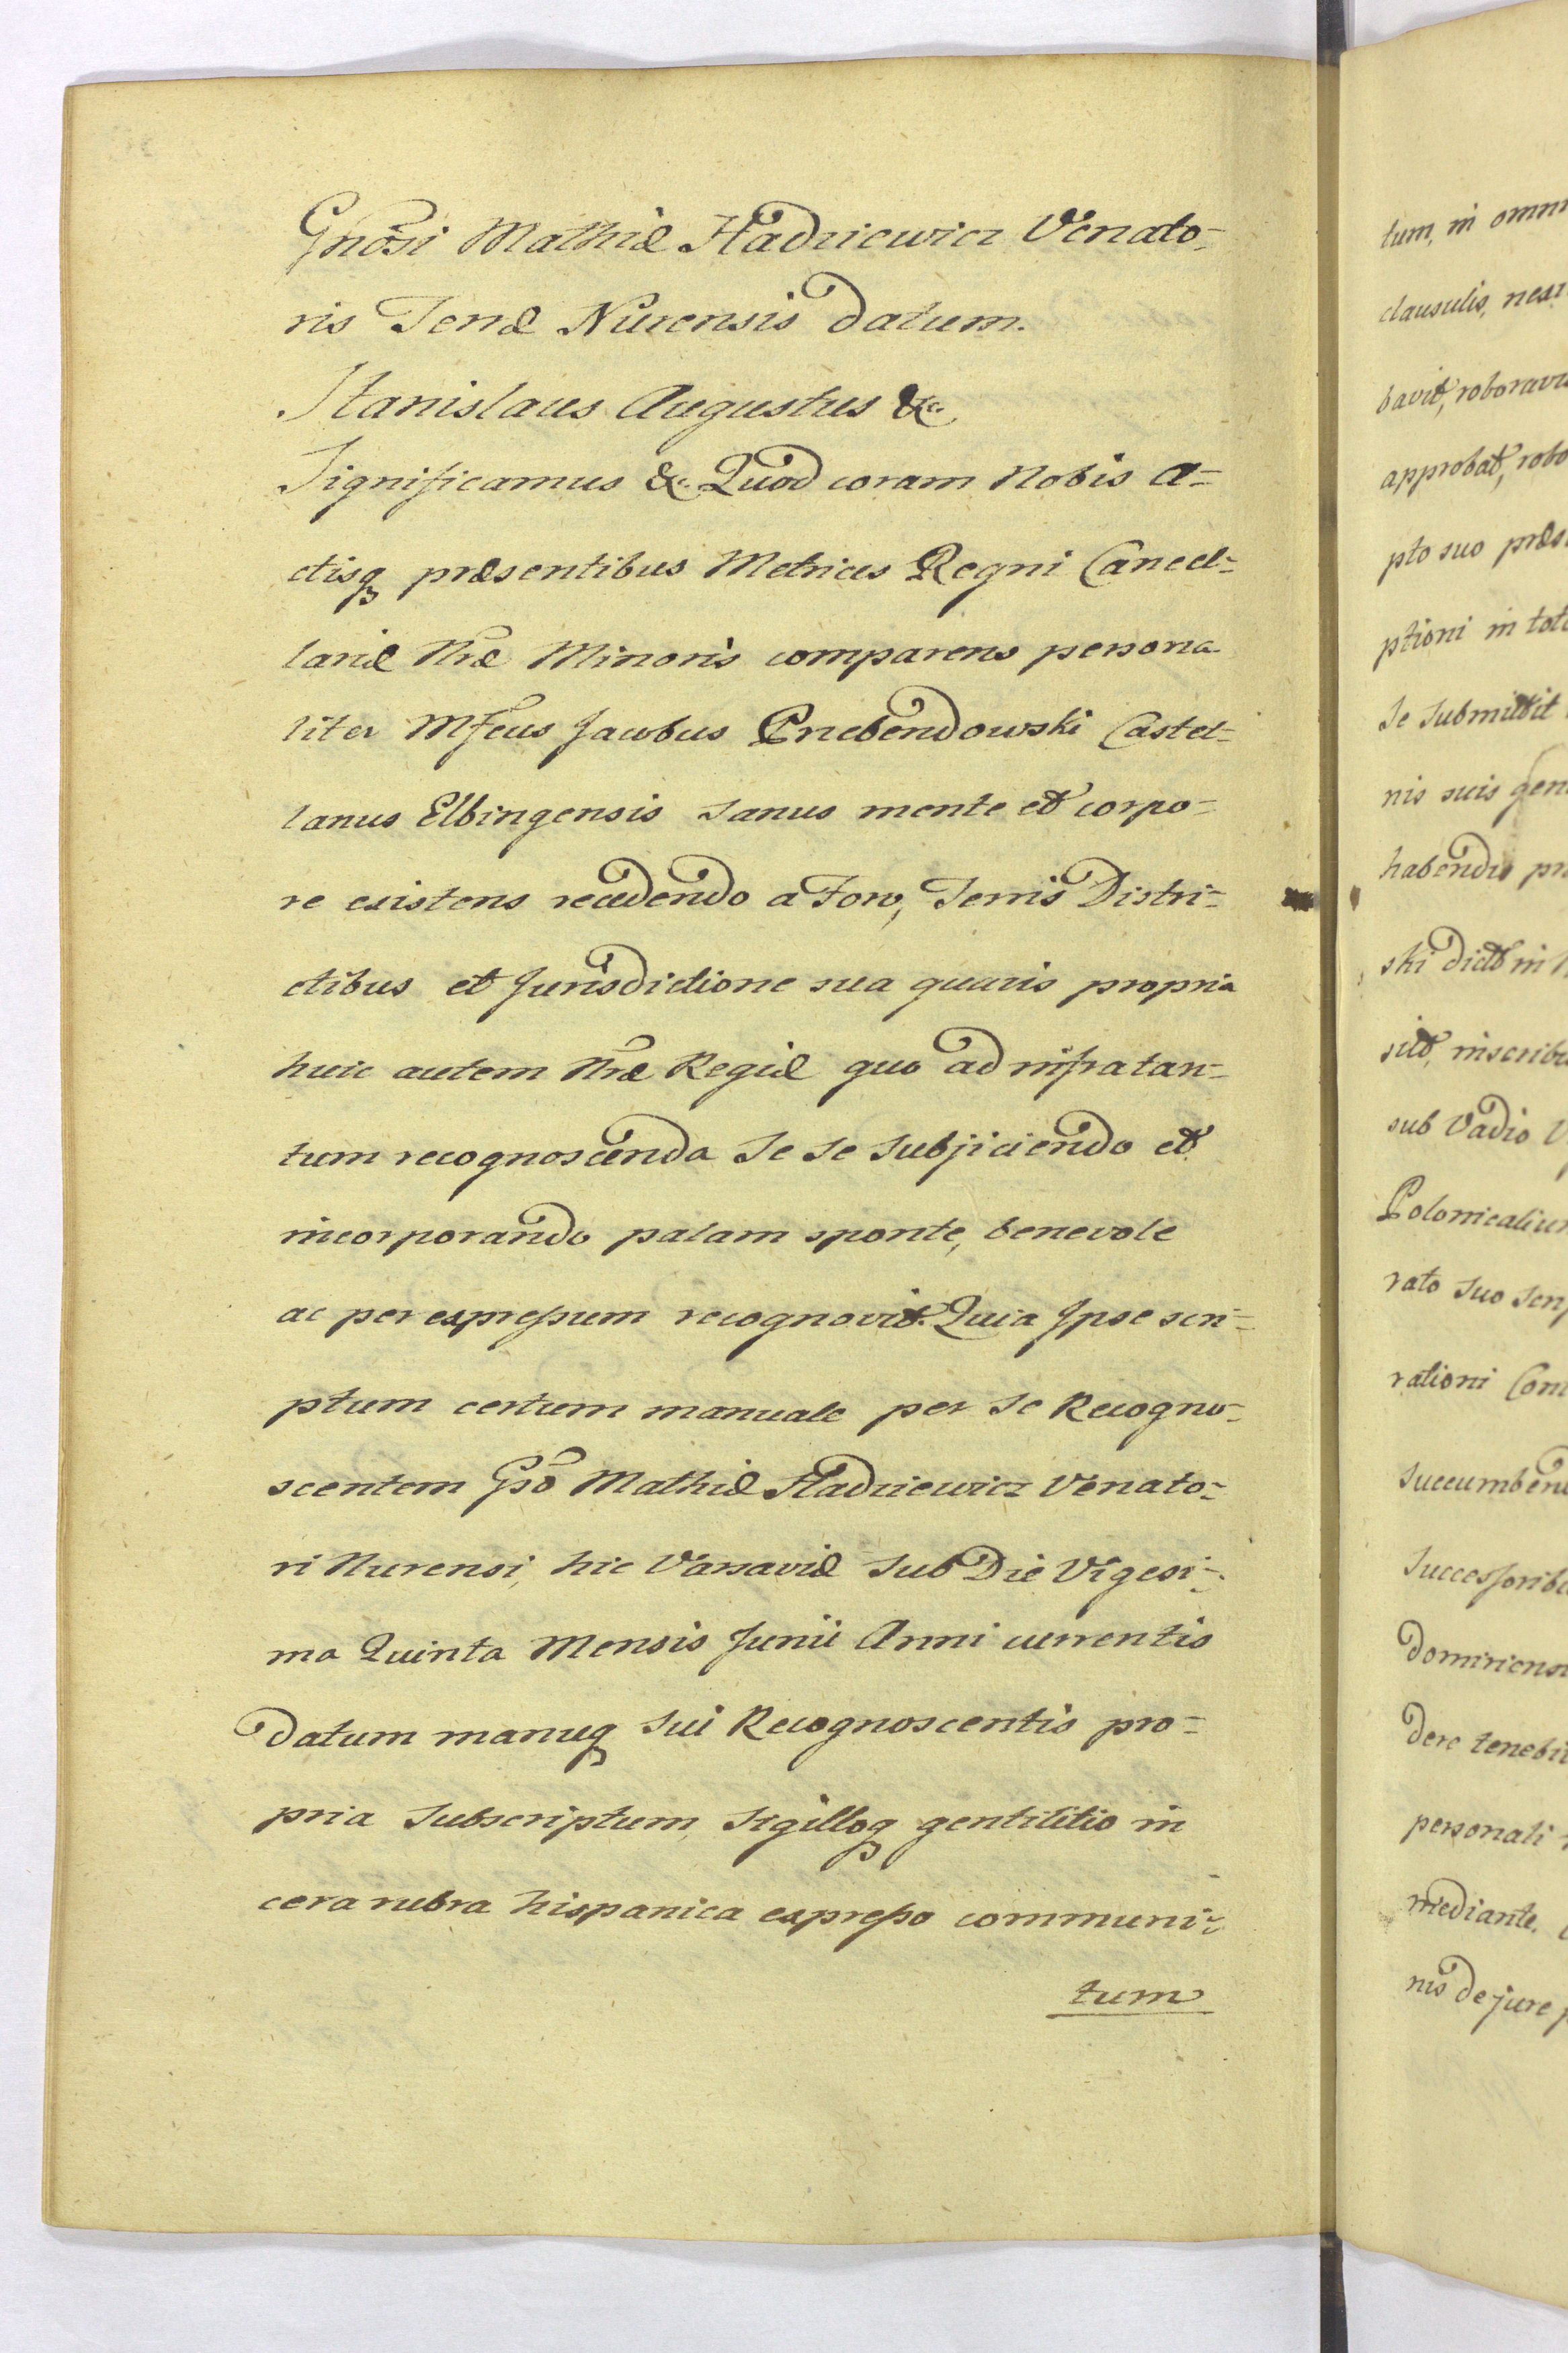 Gnosi Mathiæ Hadziewicz Venato-
ris Terræ Nurensis datum.
Stanislaus Augustus &c.
Significamus &c. Quod coram Nobis A-
ctisq præsentibus Metrices Regni Cancel-
lariæ Nræ Minoris comparens persona
liter Mfcus Jacobus Przebendowski Castel-
lanus Elbingensis sanus mente et corpo-
re existens recedendo a Foro, Terris Distri-
ctibus et Jurisdictione sua quavis propria
huic autem Nræ Regiæ quo ad infra tan-
tum recognoscenda Se se subjiciendo et
incorporando palam sponte, benevole
ac per expressum recognovit. Quia Ipse scri-
ptum certum manuale per se Recogno-
scentem Gso Mathiæ Hadziewicz Venato-
ri Nurensi, hic Varsaviæ sub Die Vigesi-
ma Quinta Mensis Junii Anni currentis
datum manuq sui Recognoscentis pro-
pria subscriptum, sigilloq gentilitio in
cera rubra hispanica expresso communi-
tum
tum, in omni
clausulis, nexi
bavit, roboravi
approbat, robo
pto suo præs
ptioni in toto
Se submittit
nis suis gen
habendis pr
ski dicto in
sit, inscrib
sub Vadio V
Polonicaliu
rato suo
rationi Con
succumben
Successorib
Dominiens
dere tenebi
personali
mediante.
nis de jure p